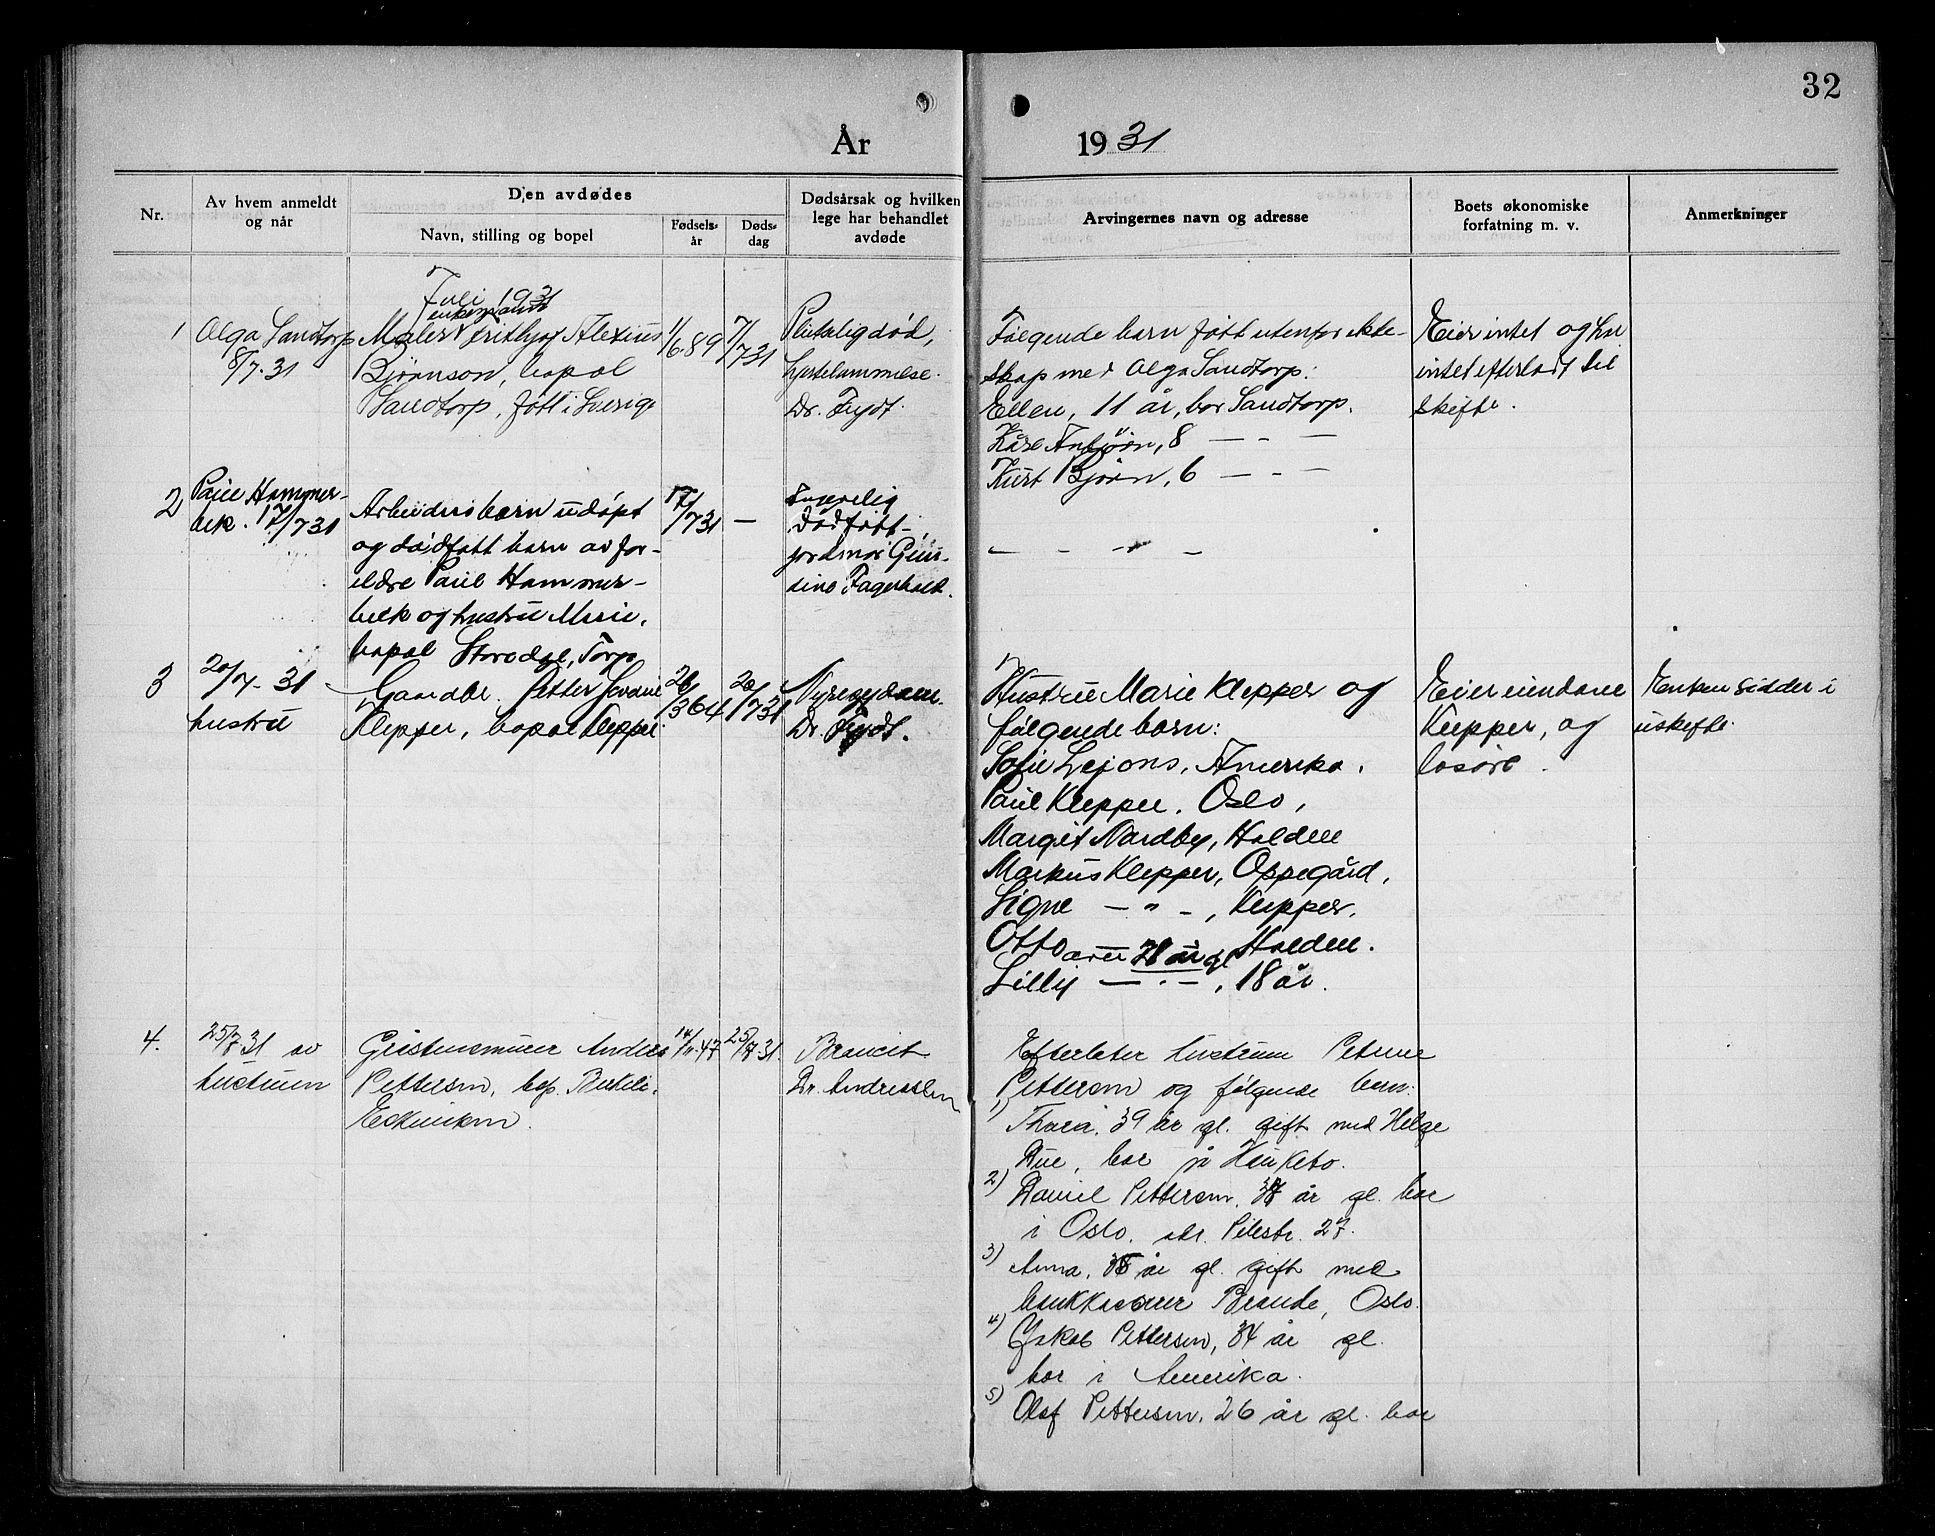 32
År 1931
Nr.
Av hvem anmeldt
og når
Den avdødes
Navn, stilling og bopel
Fødsels-
år
Døds-
dag
Dødsårsak og hvilken
lege har behandlet
avdøde
Arvingernes navn og adresse
Boets økonomiske
forfatning m. v.
Anmerkninger
Juli 1931
1
Olga Sandtorp
8/7.31
enkemand
Maler Frithjof Alexius
Bjørnson, bopæl
Sandtorp, født i Sverige
1/6.89
7/731
Plutselig død,
hjertelammelse.
Dr. Frydt.
Følgende barn født utenfor ekte-
skap med Olga Sandtorp:
Ellen, 11 år, bor Sandtorp.
Kåre Anbjørn, 8 — " —
Kurt Bjørn, 6 — " —
Eier intet og har
intet efterladt til
skifte.
2
Paul Hammer-
bek. 17/731
Arbeiders barn udøpt
og dødfødt barn av for-
eldre Paul Hammer-
bek og hustru Marie,
bopæl Storødg., Torp
17/731
—
dødfødt
jordmor
Fagerholt.
— — " —
3
20/7-31
hustru
Gaardbr. Petter
Klepper, bopæl Klepper
26/364
20/731
Nyresygdom.
Dr. Frydt.
Hustru Marie Klepper og
følgende barn:
Sofie Lejons, Amerika.
Paul Klepper, Oslo,
Margit Nordby, Halden
Markus Klepper, Oppegård,
Signe — " —, Klepper.
Otto Halden.
over 21 år gl
Lilly — " —, 18 år.
Eier eiendome
Klepper, og
løsøre.
Enken sidder i
uskifte
4.
25/7.31 av
hustruen
Anders
Pettersen, bop. Birkeli,
14/11.47
25/7.31.
Brancit
Dr. Andreassen
Efterlater hustruen Petrine
Pettersen og følgende barn:
1) Thora, 39 år gl. gift med Helge
Due, bor på Hauketo.
2) Daniel Pettersen, 37 år gl. bor
i Oslo, adr. Pilestr. 27.
3) Anna, 35 år gl. gift med
bankkasserer Brande, Oslo.
4) Jakob Pettersen, 34 år gl.
bor i Amerika.
5) Olaf Pettersen, 26 år gl. bor